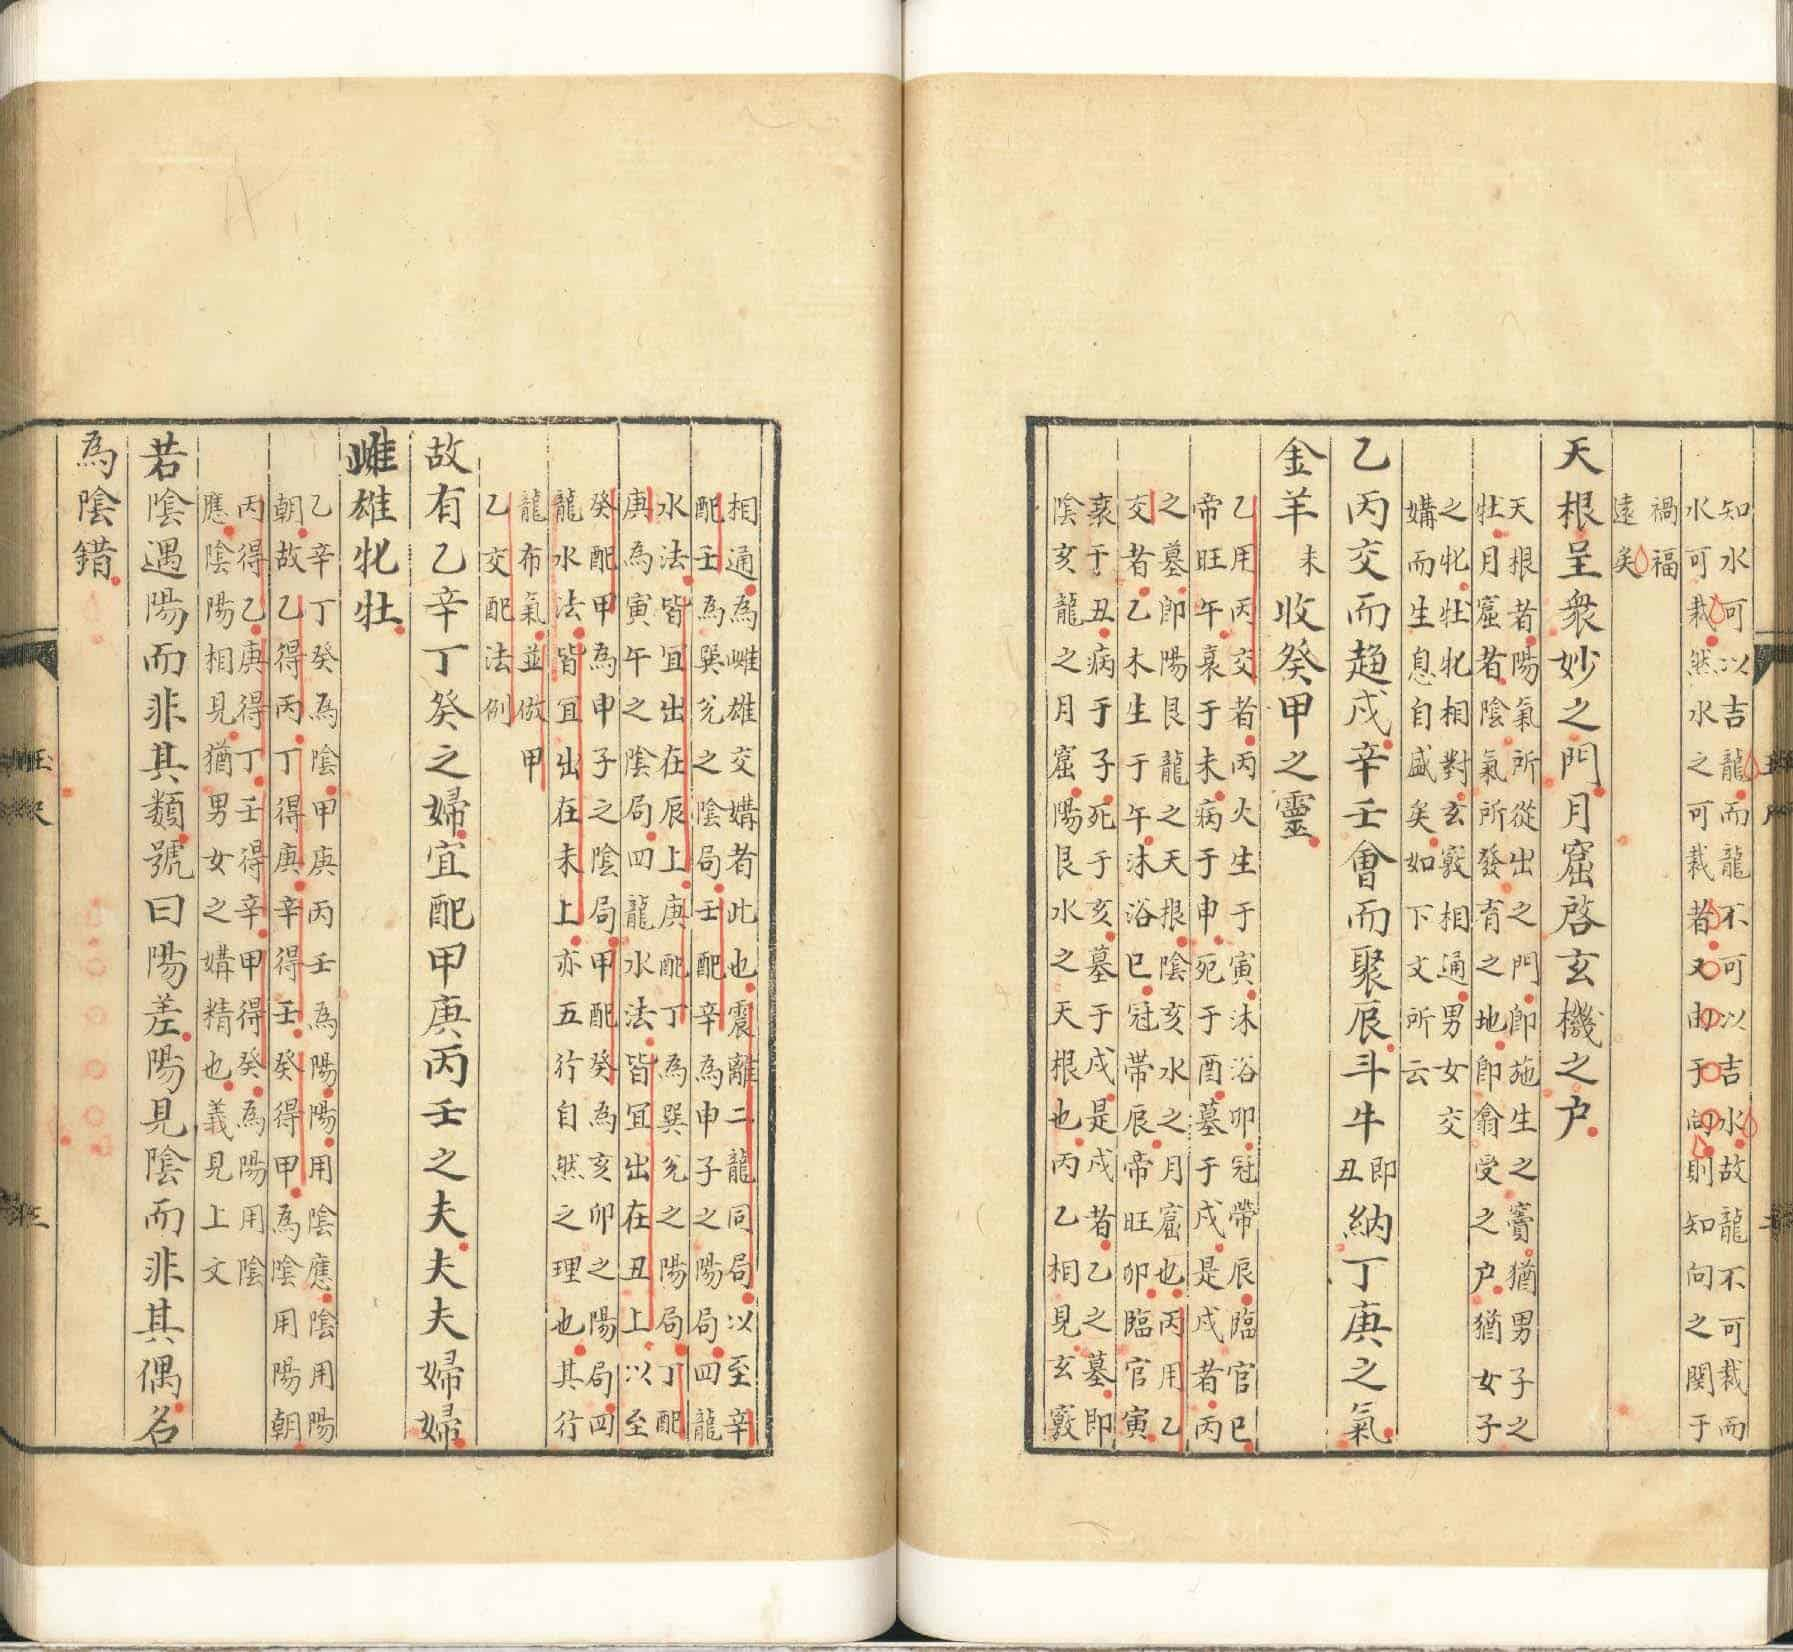 知水可以吉龍而龍不可以吉水故龍不可裁而
水可裁然水之可裁者又由于向則知向之関于
禍福
遠矣
天根呈衆妙之門月窟啓玄機之户
天根者陽氣所從出之門即施生之竇猶男子之
牡月窟者陰氣所發育之地即翕受之户猶女子
之牝牡牝相對玄竅相通男女交
媾而生息自盛矣如下文所云
乙丙交而趋戍辛壬會而聚辰斗牛即丑納丁庚之氣
金羊未收癸甲之靈
乙用丙交者丙火生于寅沐浴卯冠帶辰臨官巳
帝旺午衰于未病于申死于酉墓于戍是戍者丙
之墓即陽艮龍之天根陰亥水之月窟也丙用乙
交者乙木生于午沐浴巳冠帶辰帝旺卯臨官寅
衰于丑病于子死于亥墓于戍是戍者乙之墓即
陰亥龍之月窟陽艮水之天根也丙乙相見玄竅
相通為雌雄交媾者此也震離二龍同局以至辛
配壬為巽兊之陰局壬配辛為申子之陽局四龍
水法皆宜出在辰上庚配丁為巽兊之陽局丁配
庚為寅午之陰局四龍水法皆宜出在丑上以至
癸配甲為申子之陰局甲配癸為亥卯之陽局四
龍水法皆宜出在未上亦五行自然之理也其行
龍布氣並倣甲
乙交配法例
故有乙辛丁癸之婦宜配甲庚丙壬之夫夫夫婦婦
雌雄牝牡
乙辛丁癸為陰甲庚丙壬為陽陽用陰應陰用陽
朝故乙得丙丁得庚辛得壬癸得甲為陰用陽朝
丙得乙庚得丁壬得辛甲得癸為陽用陰
應陰陽相見猶男女之媾精也義見上文
若陰遇陽而非其類號曰陽差陽見陰而非其偶名
為陰錯